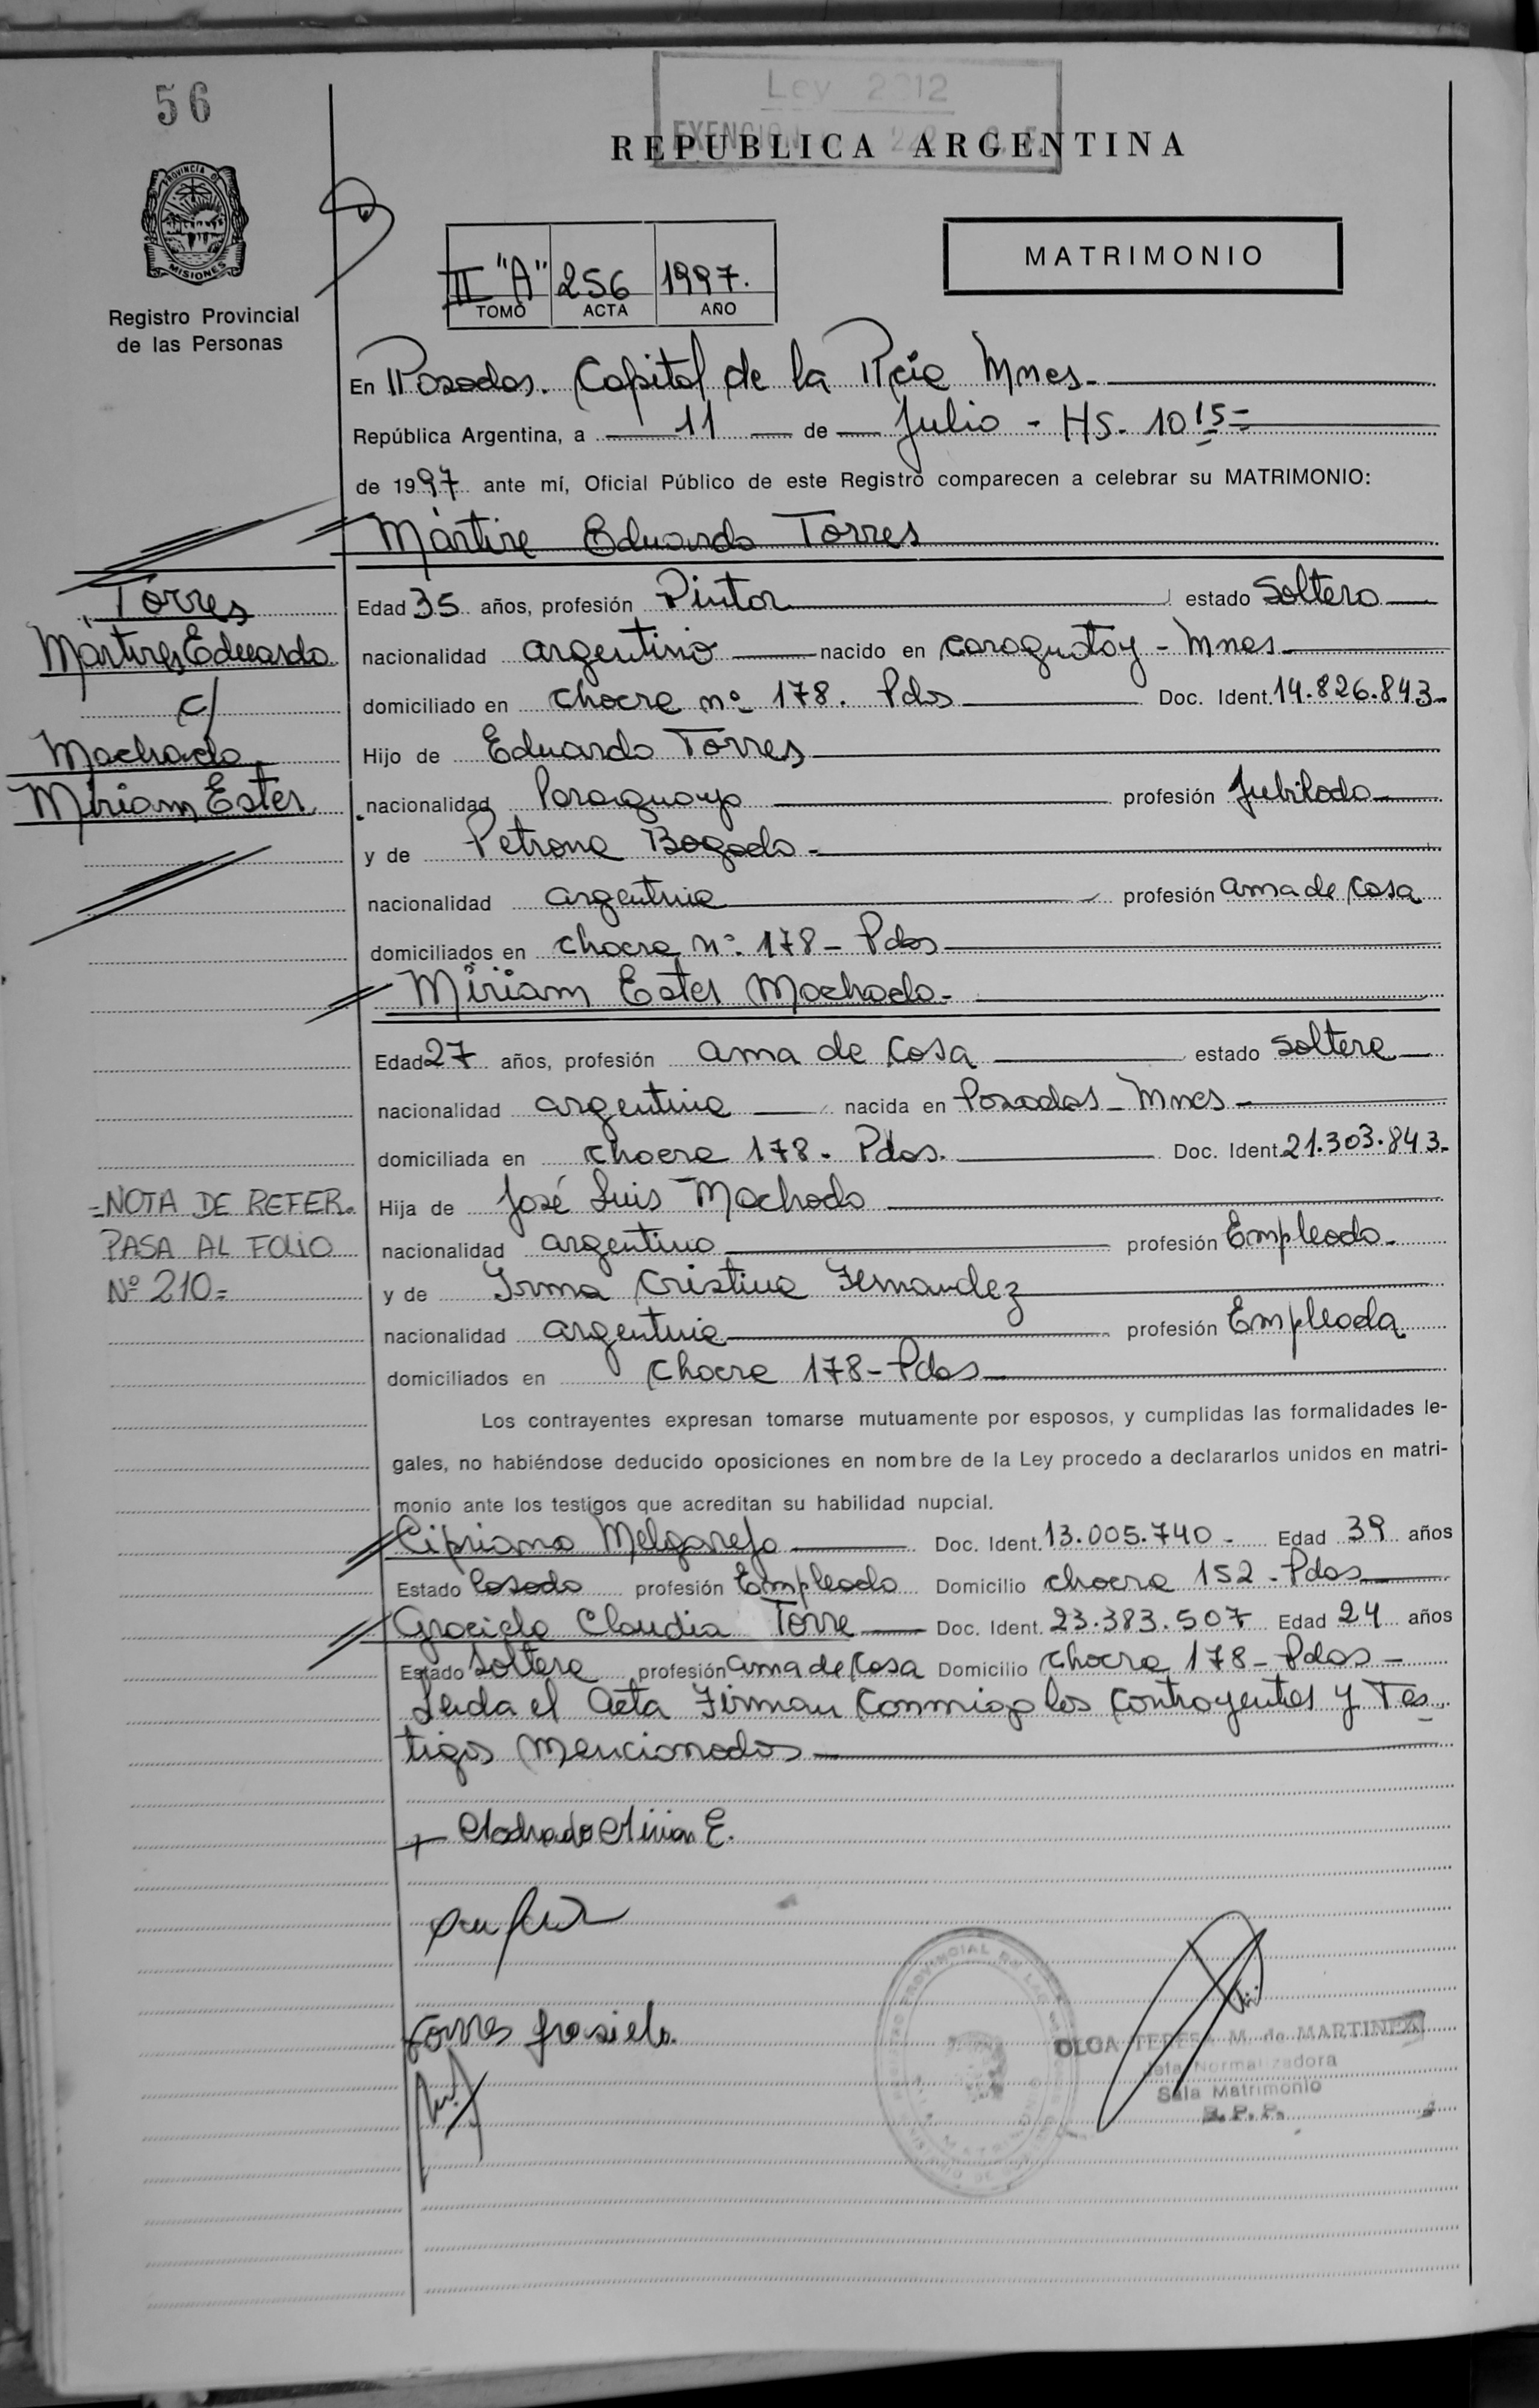 56
Ley 2012
EXENCION
REPUBLICA ARGENTINA
PROVINCIA D
MISIONES
Registro Provincial
de las Personas
MATRIMONIO
II "A" 256 1997.
TOMO ACTA AÑO
En Posadas. Capital de la Pcia Mnes-
República Argentina, a 11 de Julio - HS. 10 15=
de 1997 ante mí, Oficial Público de este Registro comparecen a celebrar su MATRIMONIO:
Mártire Eduardo Torres
Edad 35 años, profesión Pintor estado Soltero
nacionalidad argentino nacido en Caraguatay - Mnes.
domiciliado en chacra nº 178. Pdas Doc. Ident. 14.826.843-
Hijo de Eduardo Torres
nacionalidad Paraguayo profesión Jubilado
y de Petrona Bogado-
nacionalidad argentina profesión ama de Casa
domiciliados en chacra nº 178 - Pdas
Miriam Ester Machado-
Edad 27 años, profesión ama de Casa estado Soltera
nacionalidad argentina nacida en Posadas - Mnes -
domiciliada en chacra 178. Pdas. Doc. Ident. 21.303.843-
Hija de José Luis Machado
nacionalidad argentino profesión Empleado-
y de Irma Cristina Fernandez
nacionalidad argentina profesión Empleada
domiciliados en chacra 178 - Pdas
Los contrayentes expresan tomarse mutuamente por esposos, y cumplidas las formalidades le-
gales, no habiéndose deducido oposiciones en nombre de la Ley procedo a declararlos unidos en matri-
monio ante los testigos que acreditan su habilidad nupcial.
Cipriano Melgarejo Doc. Ident. 13.005.740 - Edad 39 años
Estado Casado profesión Empleado Domicilio chacra 152 - Pdas
Graciela Claudia Torre Doc. Ident. 23.383.507 Edad 24 años
Estado Soltera profesión ama de Casa Domicilio chacra 178 - Pdas -
Leida el Acta Firman Conmigo los Contrayentes y Tes
tigos Mencionados
Torres
Mártires Eduardo
c/
Machado
Miriam Ester
=NOTA DE REFER.
PASA AL FOLIO
Nº 210=
+ Machado Mirian E.
Torres Grasiela
OLGA TERESA M. de MARTINEZ
Jefa Normalizadora
Sala Matrimonio
R.P.P.